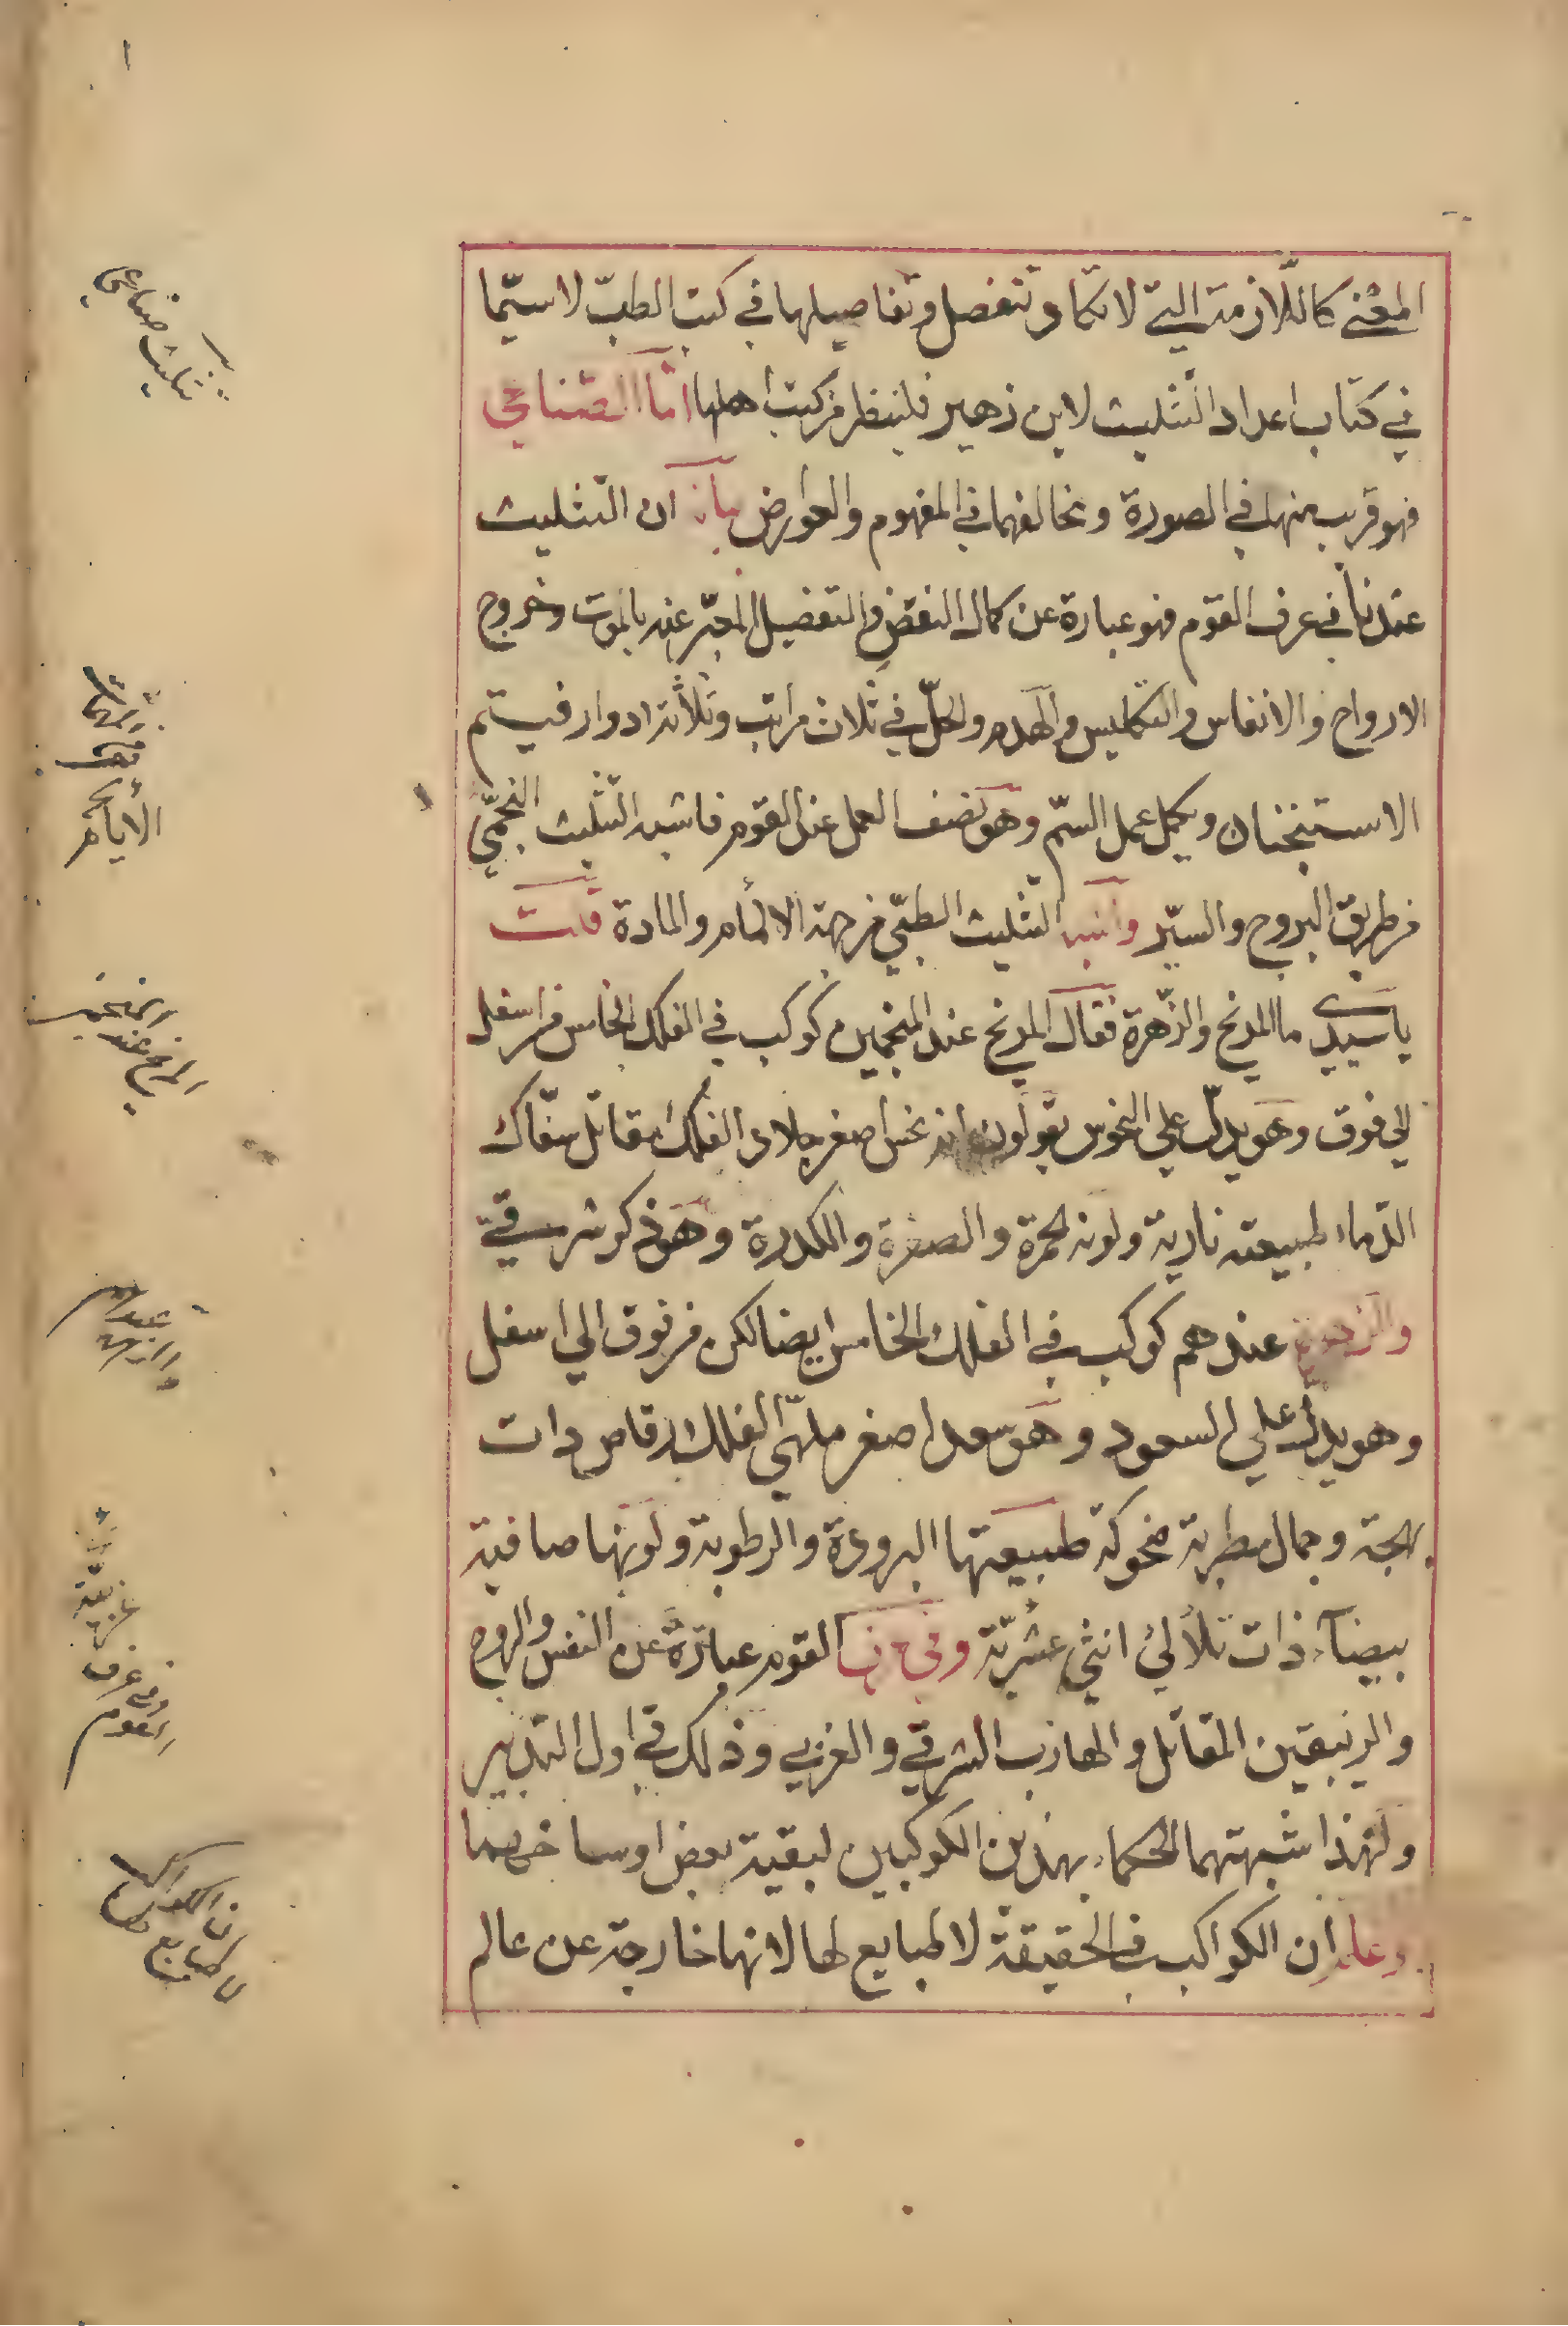 المغنى كاللازمة التي لا تكاد وتنفصل وتفاصيلها في كتب الطبّ لا سيّما
في كتاب اعداد التثليث لابن زهير فلينظر من كتب اهلها امّا الصناعي
فهو قريب منهما في الصورة ويخالفهما في المفهوم والعوارض بيانه ان التثليث
عندنا في عرف القوم فهو عبارة عن كمال النقض والتفصيل المعبّر عنه بالموت وخروج
الارواح والانفاس والتكليس والهدم والحلّ في ثلاث مراتب وثلاثة ادوار فيستتم
الاستجنان ويكمل عمل السمّ وهو نصف العمل عند القوم فاشبه التثليث النجميّ
من طريق البروج والسيّر واشبه التثليث الطبّي من جهة الالمام والمادة قلت
يا سيدي ما المريخ والزّهرة فقال المريخ عند المنجمين كوكب في الفلك الخامس من اسفل
الى فوق وهو يدلّ على النحوس يقولون انه نحس اصغر جلاد الفلك مقاتل سفّاك
الدّماء طبيعته نارية ولونه الحمرة والصفرة والكدرة وهو ذكر شرقي
والزهرة عندهم كوكب في الفلك الخامس ايضا لكن من فوق الى اسفل
وهو يدلّ على السعود وهو سعد اصغر ملهّي الفلك رقاص ذات
بهجة وجمال مطربة ضحوكة طبيعتها البرودة والرطوبة ولونها صافية
بيضآء ذات تلألئ انثى عشريّة وفي عرف القوم عبارة عن النفس والروح
والزيبقين المقاتل والهارب الشرقي والغربي وذلك في اول التدبير
ولهذا شبهتهما الحكماء بهذين الكوكبين لبقية بعض اوساخهما
وعلم ان الكواكب في الحقيقة لا طبايع لها لانها خارجة عن عالم
تثليث صناعي
الأيام
المريخ عند المنجمين
والزهرة عندهم
وفي عرف القوم
ان الكواكب
لا طبايع لها